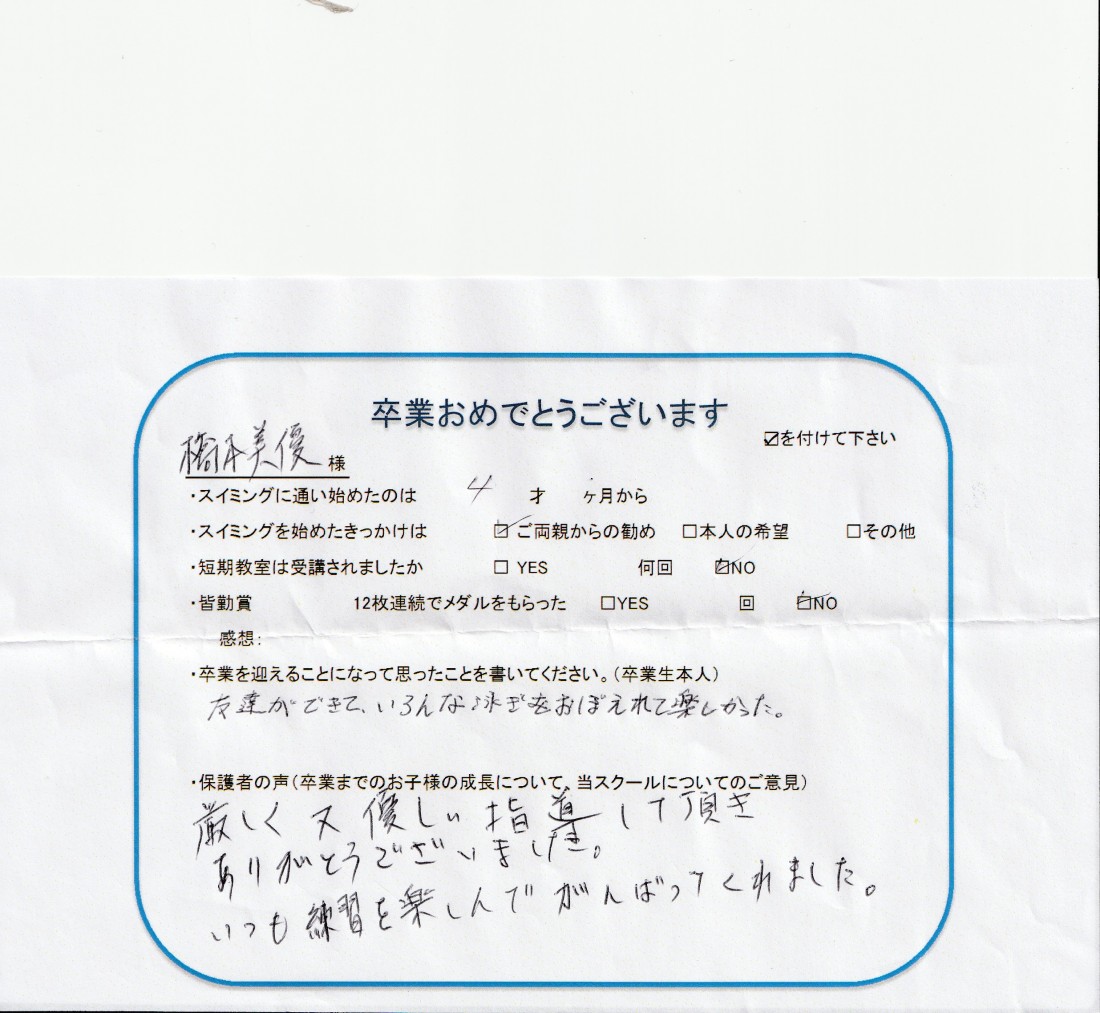 卒業おめでとうございます
☑を付けて下さい
橋本美優 様
・スイミングに通い始めたのは 4 才 ヶ月から
・スイミングを始めたきっかけは ☑ご両親からの勧め □本人の希望 □その他
・短期教室は受講されましたか □ YES 何回 ☑NO
・皆勤賞 12枚連続でメダルをもらった □YES 回 ☑NO
感想:
・卒業を迎えることになって思ったことを書いてください。(卒業生本人)
友達ができて、いろんな泳ぎをおぼえれて楽しかった。
・保護者の声(卒業までのお子様の成長について、当スクールについてのご意見)
厳しく又優しい指導して頂き
ありがとうございました。
いつも練習を楽しんでがんばってくれました。